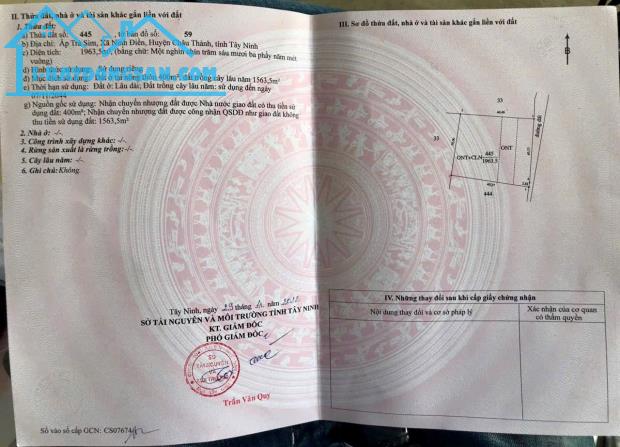 II. Thửa đất, nhà ở và tài sản khác gắn liền với đất
1. Thửa đất:
a) Thửa đất số: 445 , tờ bản đồ số: 59
b) Địa chỉ: Ấp Trà Sim, Xã Ninh Điền, Huyện Châu Thành, tỉnh Tây Ninh
c) Diện tích: 1963,5m², (bằng chữ: Một nghìn chín trăm sáu mươi ba phẩy năm mét
vuông)
d) Hình thức sử dụng: Sử dụng riêng
đ) Mục đích sử dụng: Đất ở tại nông thôn 400m²; đất trồng cây lâu năm 1563,5m²
e) Thời hạn sử dụng: Đất ở: Lâu dài; Đất trồng cây lâu năm: sử dụng đến ngày
g) Nguồn gốc sử dụng: Nhận chuyển nhượng đất được Nhà nước giao đất có thu tiền sử
dụng đất: 400m²; Nhận chuyển nhượng đất được công nhận QSDĐ như giao đất không
thu tiền sử dụng đất: 1563,5m²
2. Nhà ở: -/-
3. Công trình xây dựng khác: -/-
4. Rừng sản xuất là rừng trồng: -/-
5. Cây lâu năm: -/-
6. Ghi chú: Không.
Tây Ninh, ngày 29 tháng năm
SỞ TÀI NGUYÊN VÀ MÔI TRƯỜNG TỈNH TÂY NINH
KT. GIÁM ĐỐC
PHÓ GIÁM ĐỐC
Trần Văn Quy
Số vào sổ cấp GCN: CS07674
III. Sơ đồ thửa đất, nhà ở và tài sản khác gắn liền với đất
B
33
33
ONT+CLN
445
1963.5
ONT
đường đất
444
IV. Những thay đổi sau khi cấp giấy chứng nhận
Nội dung thay đổi và cơ sở pháp lý
Xác nhận của cơ quan
có thẩm quyền